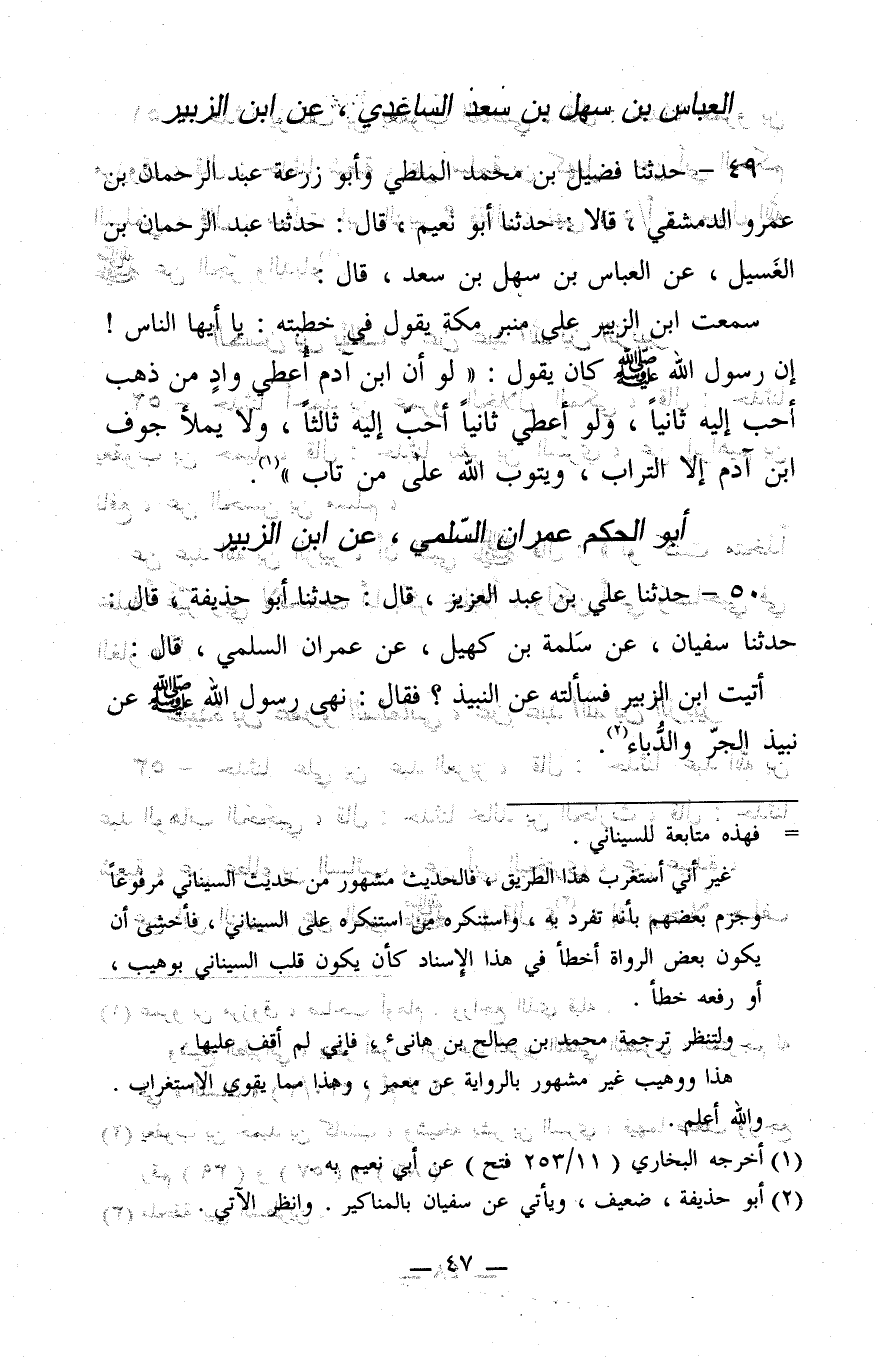 العباس بن سهل بن سعد الساعدي ، عن ابن الزبير
٤٩ – حدثنا فضيل بن محمد الملطي وأبو زرعة عبد الرحمان بن
عمرو الدمشقي ، قالا : حدثنا أبو نعيم ، قال : حدثنا عبد الرحمان بن
الغَسيل ، عن العباس بن سهل بن سعد ، قال :
سمعت ابن الزبير على منبر مكة يقول في خطبته : يا أيها الناس !
إن رسول الله ﷺ كان يقول : « لو أن ابن آدم أُعطي وادٍ من ذهب
أحب إليه ثانياً ، ولو أعطي ثانياً أحبّ إليه ثالثاً ، ولا يملأ جوف
ابن آدم إلا التراب ، ويتوب الله على من تاب »(١).
أبو الحكم عمران السّلمي ، عن ابن الزبير
٥٠ – حدثنا علي بن عبد العزيز ، قال : حدثنا أبو حذيفة ، قال :
حدثنا سفيان ، عن سَلمة بن كهيل ، عن عمران السلمي ، قال :
أتيت ابن الزبير فسألته عن النبيذ ؟ فقال : نهى رسول الله ﷺ عن
نبيذ الجرّ والدُّباء(٢).
= فهذه متابعة للسيناني .
غير أني أستغرب هذا الطريق ، فالحديث مشهور من حديث السيناني مرفوعاً
وجزم بعضهم بأنه تفرد به ، واستنكره من استنكره على السيناني ، فأخشى أن
يكون بعض الرواة أخطأ في هذا الإسناد كأن يكون قلب السيناني بوهيب ،
أو رفعه خطأ .
ولتنظر ترجمة محمد بن صالح بن هانىء ، فإني لم أقف عليها .
هذا ووهيب غير مشهور بالرواية عن معمر ، وهذا مما يقوي الاستغراب .
والله أعلم .
(١) أخرجه البخاري ( ٢٥٣/١١ فتح ) عن أبي نعيم به .
(٢) أبو حذيفة ، ضعيف ، ويأتي عن سفيان بالمناكير . وانظر الآتي .
— ٤٧ —